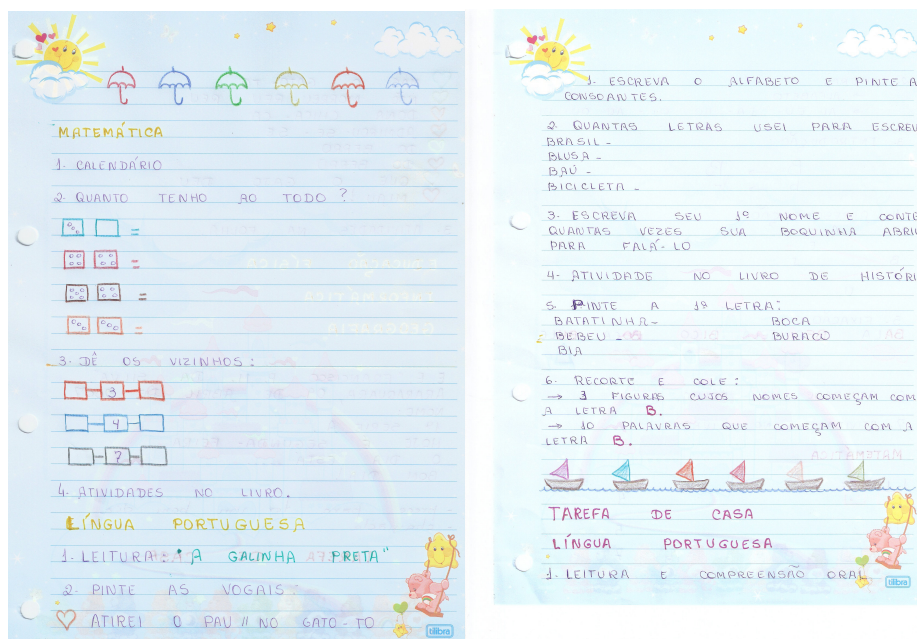 MATEMÁTICA
1- CALENDÁRIO
2- QUANTO TENHO AO TODO?
=
=
=
=
3- DÊ OS VIZINHOS:
3
4
7
4- ATIVIDADES NO LIVRO.
LÍNGUA PORTUGUESA
1- LEITURA: "A GALINHA PRETA"
2- PINTE AS VOGAIS:
ATIREI O PAU // NO GATO-TO
tilibra
1- ESCREVA O ALFABETO E PINTE A
CONSOANTES.
2- QUANTAS LETRAS USEI PARA ESCREV
BRASIL -
BLUSA -
BAÚ -
BICICLETA -
3- ESCREVA SEU 1º NOME E CONTE
QUANTAS VEZES SUA BOQUINHA ABRIU
PARA FALÁ-LO
4- ATIVIDADE NO LIVRO DE HISTÓRI
5- PINTE A 1ª LETRA:
BATATINHA- BOCA
BEBEU - BURACO
BIA
6- RECORTE E COLE:
→ 3 FIGURAS CUJOS NOMES COMEÇAM COM
A LETRA B.
→ 10 PALAVRAS QUE COMEÇAM COM A
LETRA B.
TAREFA DE CASA
LÍNGUA PORTUGUESA
1- LEITURA E COMPREENSÃO ORAL
tilibra